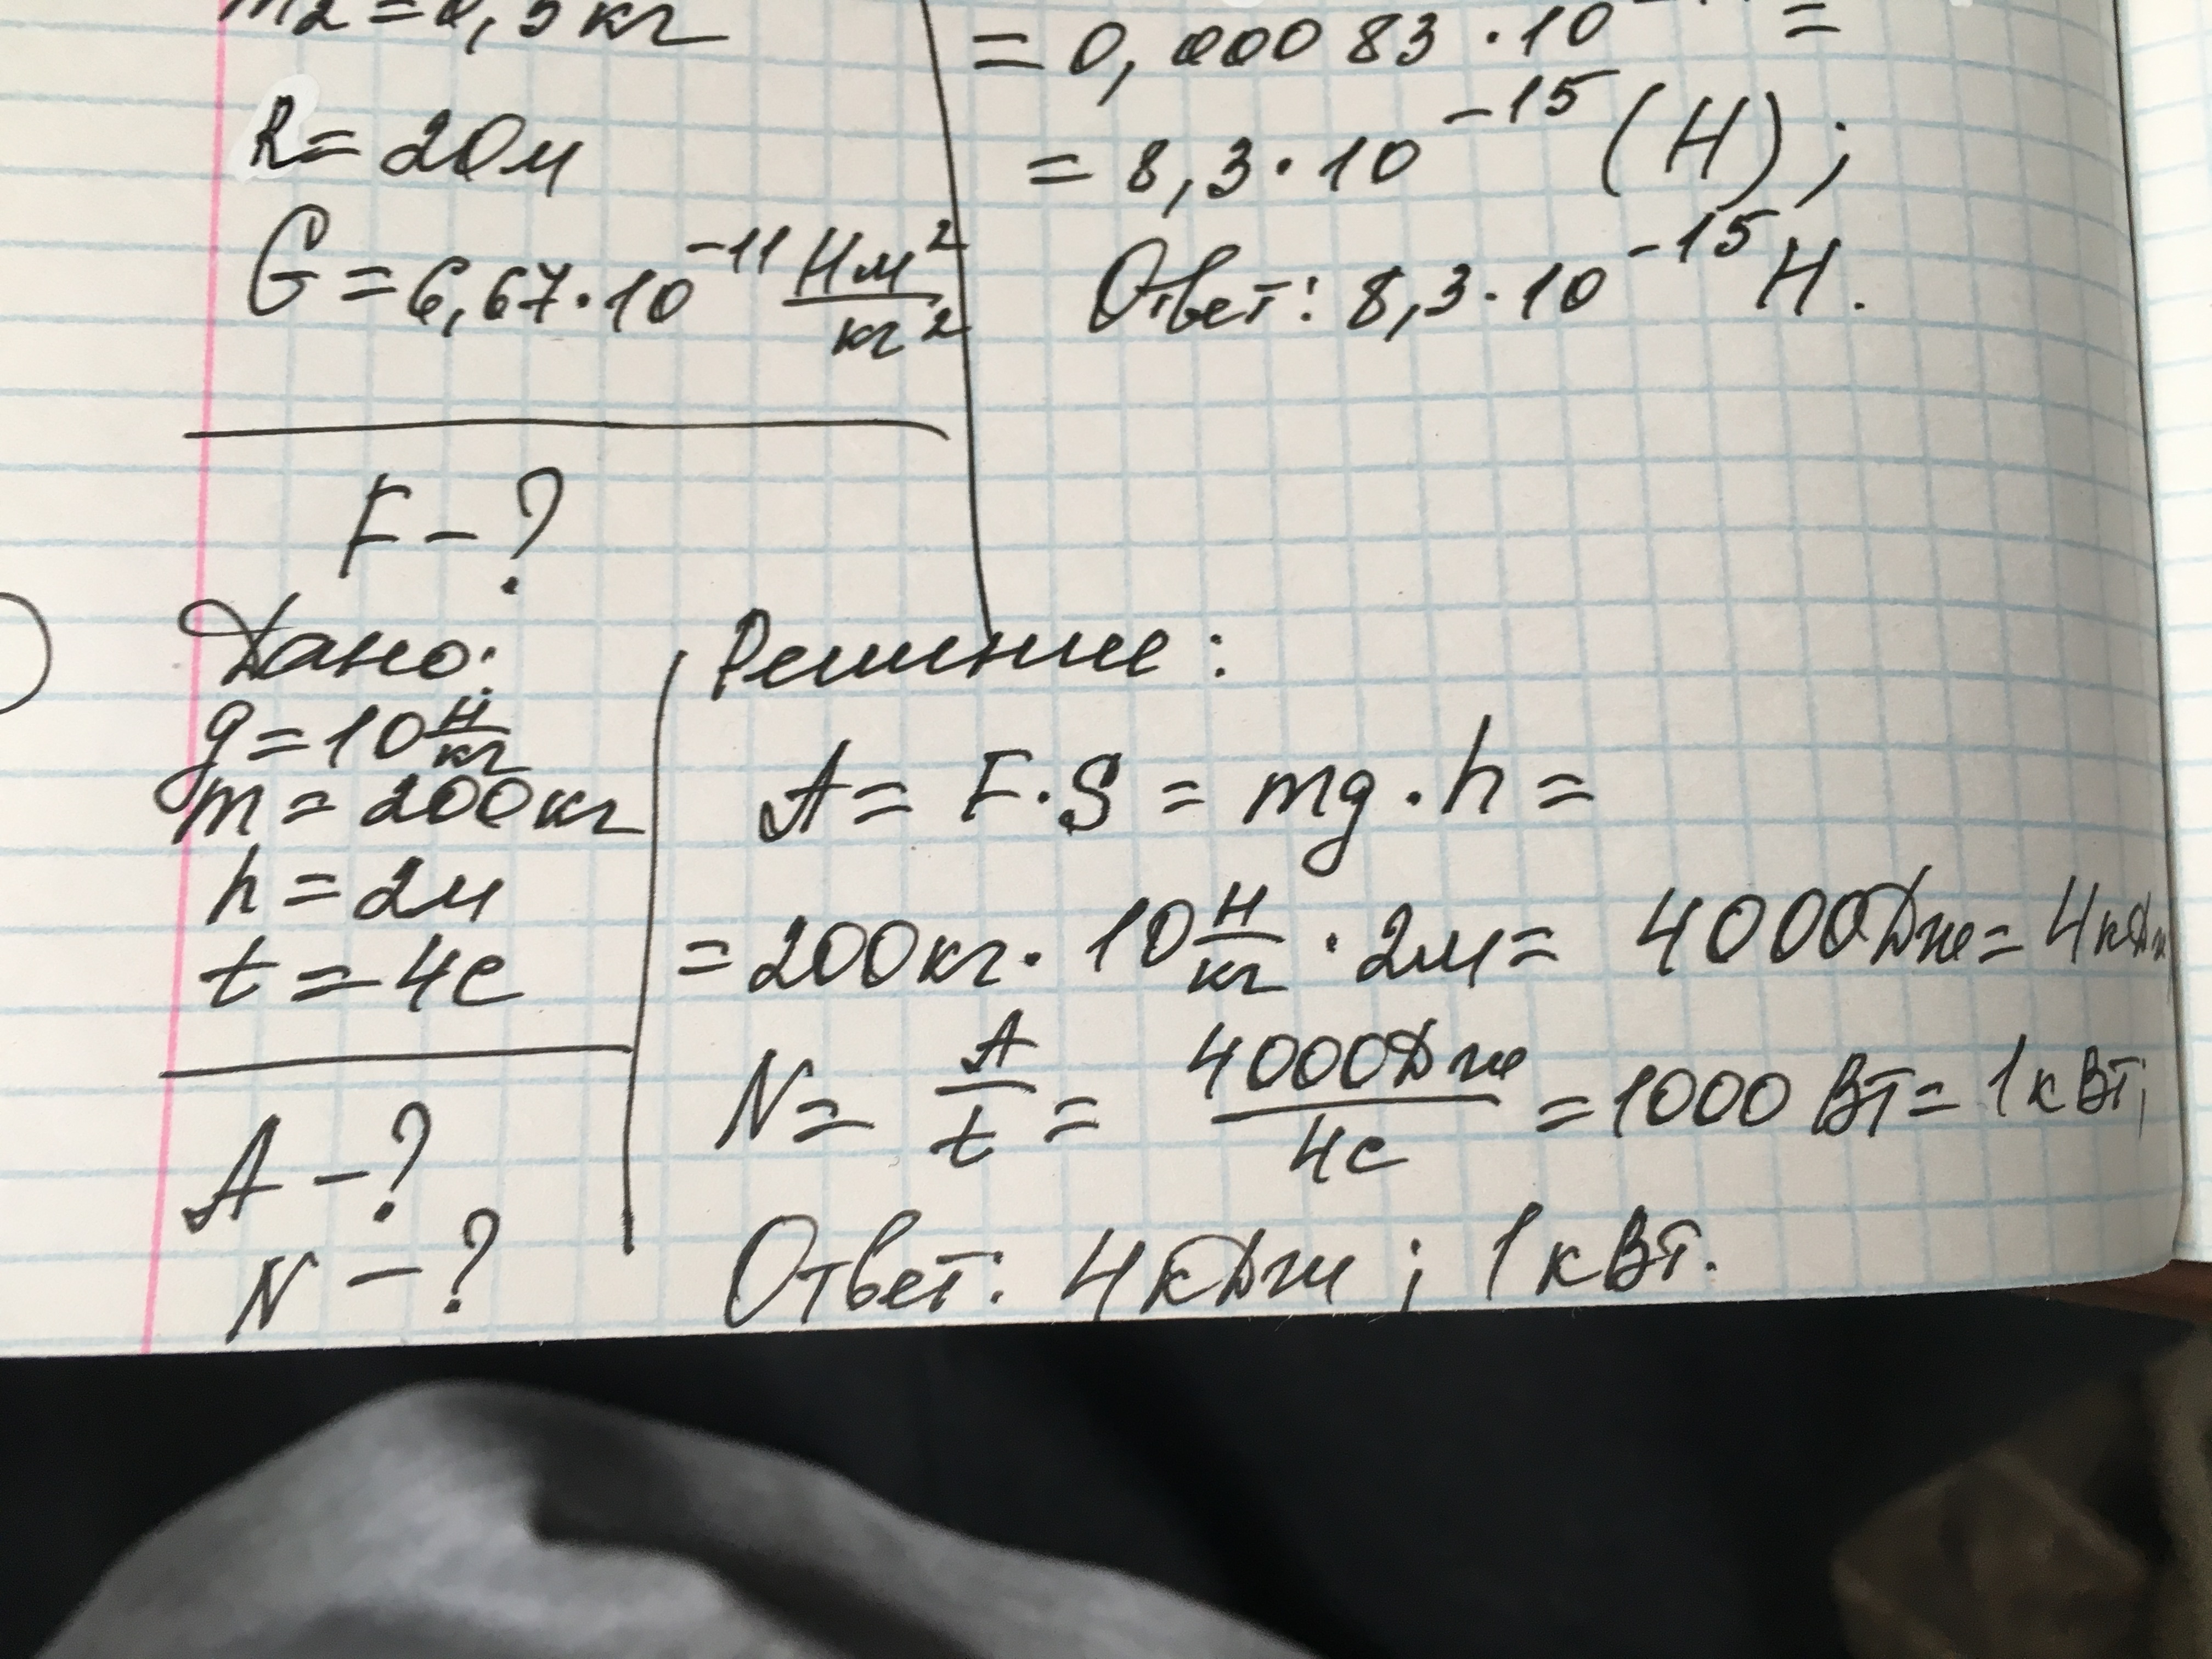 R = 20м
G = 6,67·10⁻¹¹ Нм²/кг²
F – ?
= 0,00083·10
= 8,3·10⁻¹⁵ (Н);
Ответ: 8,3·10⁻¹⁵ Н.
Дано:
g = 10 Н/кг
m = 200кг
h = 2м
t = 4с
A – ?
N – ?
Решение:
A = F·S = mg·h =
= 200кг · 10 Н/кг · 2м = 4000Дж = 4кДж
N = A/t = 4000Дж/4с = 1000 Вт = 1кВт;
Ответ: 4кДж ; 1кВт.